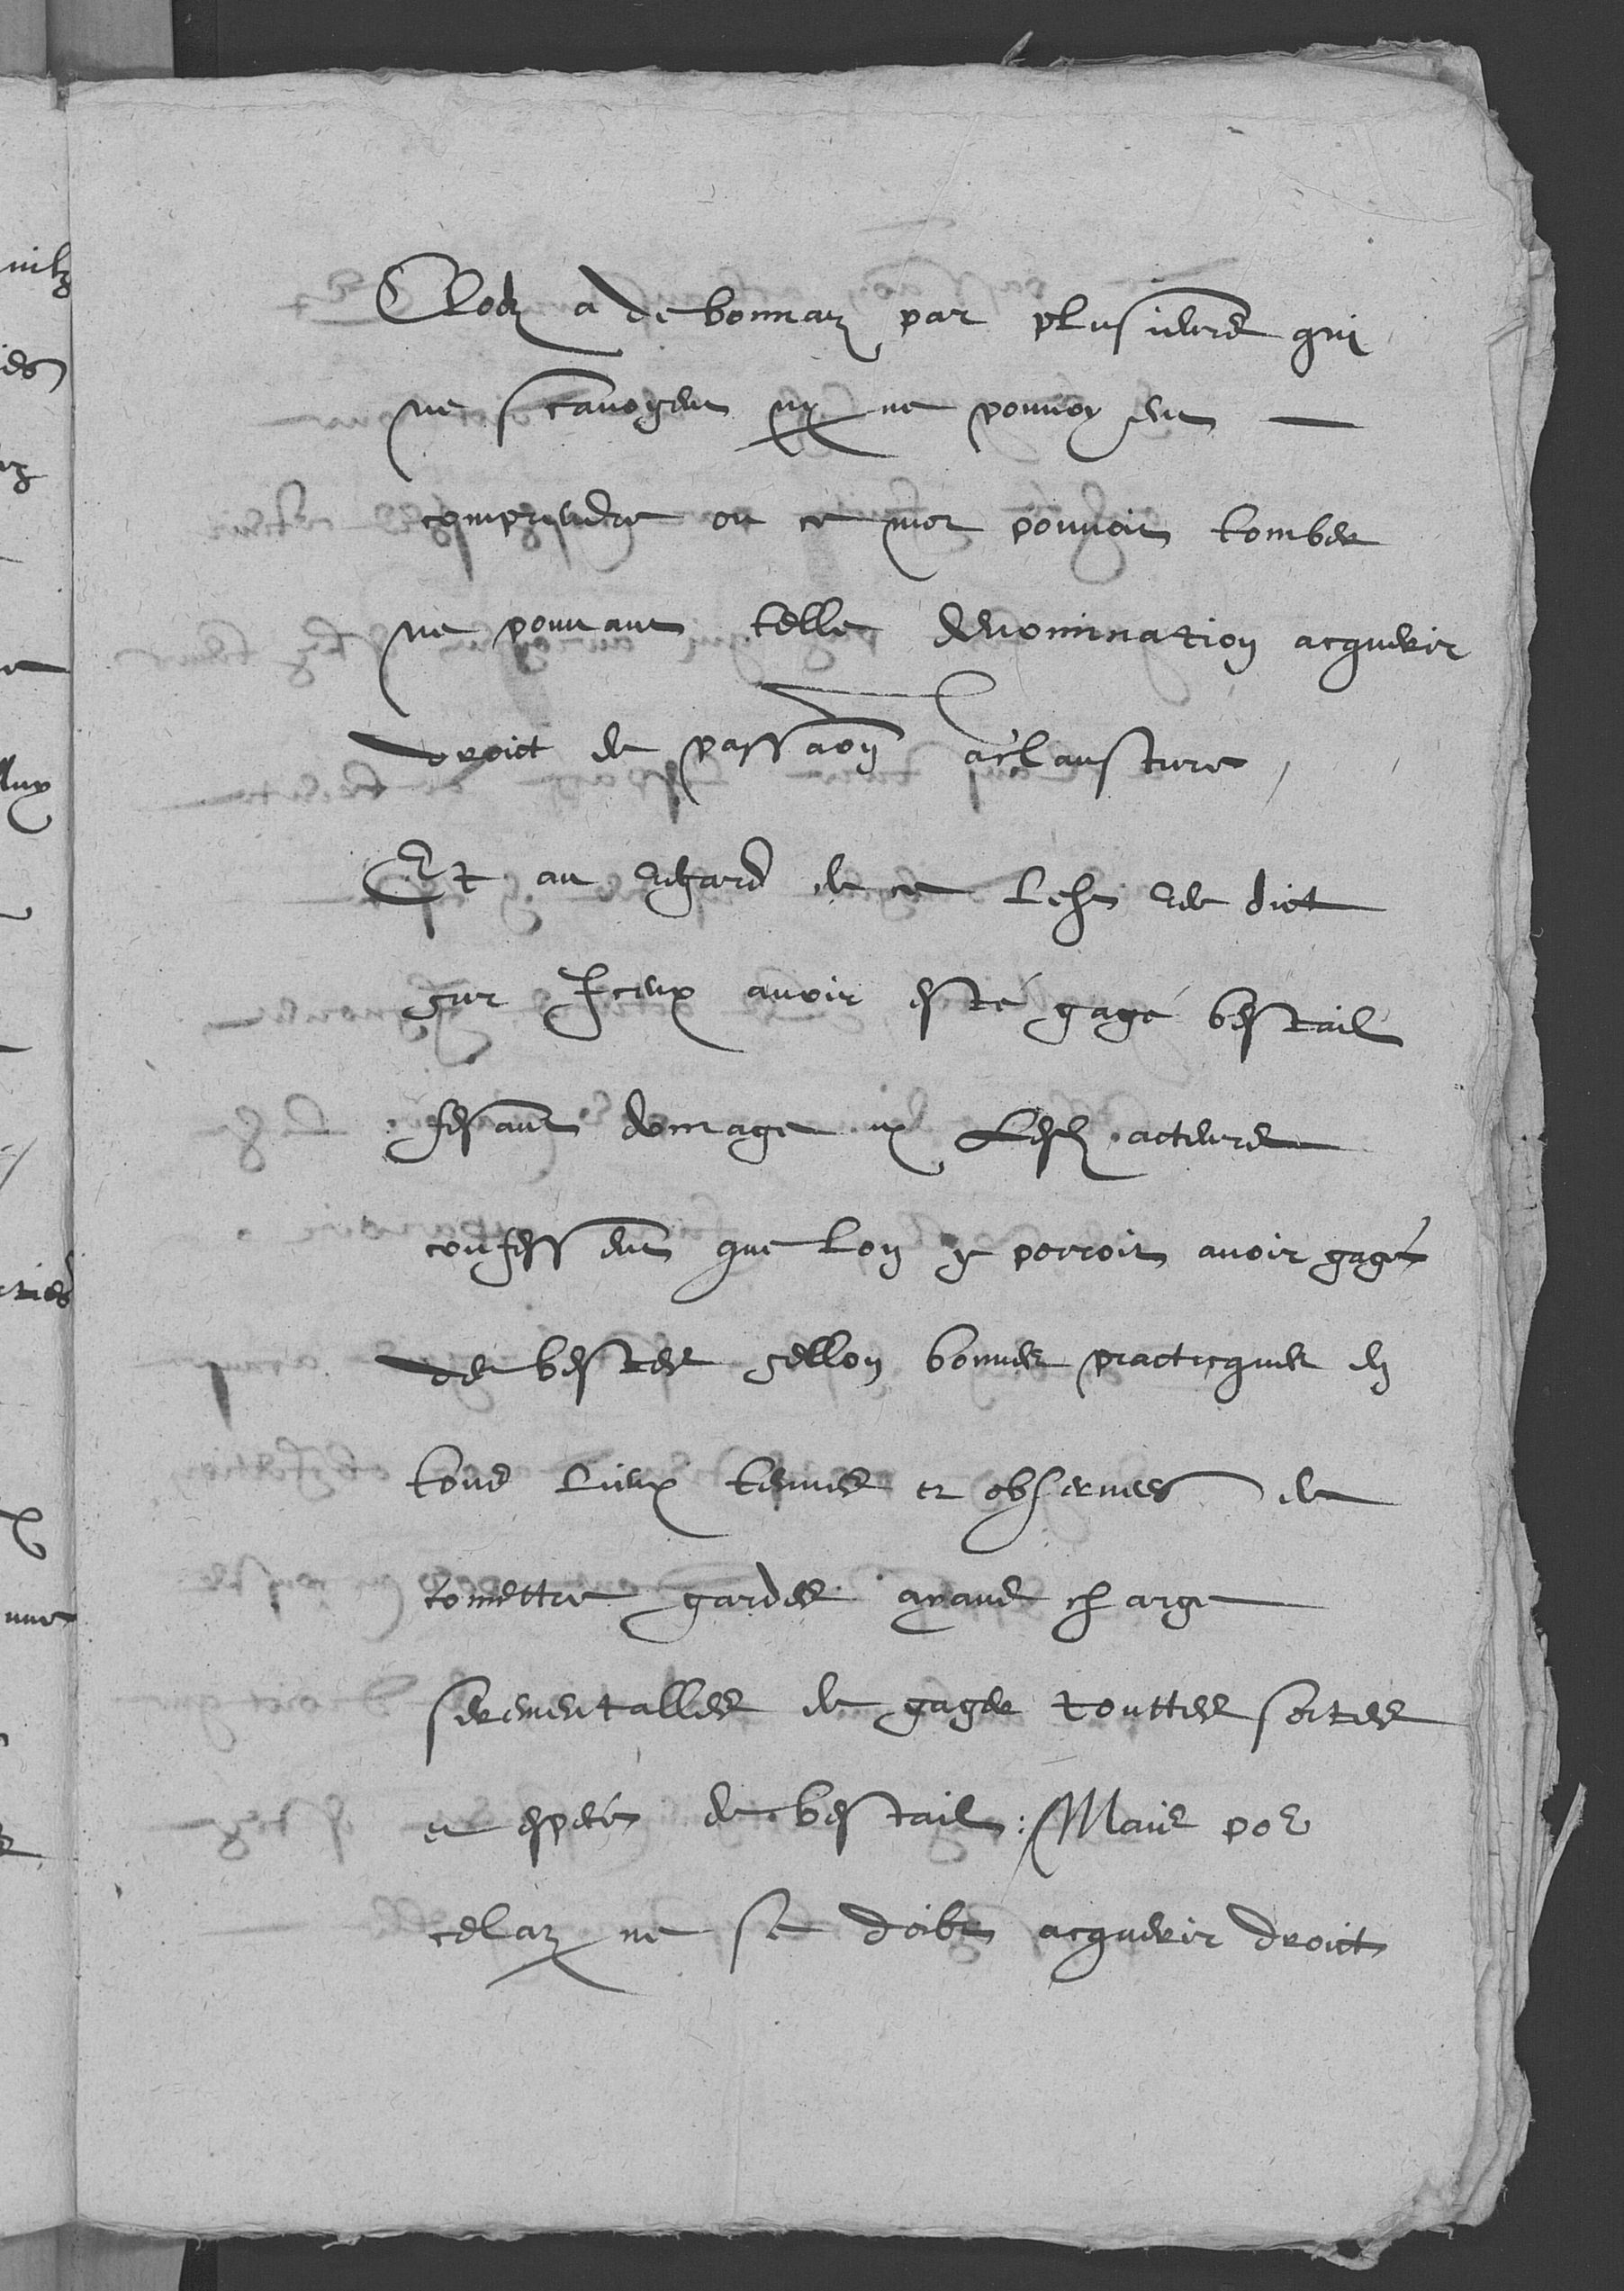 Clodz a de bonnaz par plusieurs qui
ne scavoyent ny ne pouvoyent
comprendre ou ce mot pouvoit tomber
ne pouvant telle denomination acquerir
droict de passaon a clausture,
Et au regard de ce dict
sur Iceux avoir esté gagé bestail
fesant domage acteurs
confessent que lon y porroit avoir gagé
de bestes sellon bonnes practicques en
tous lieux tenues et observees de
comettre gardes ayans charge
serementalles de gager touttes sortes
et espece de bestail: Mais por
celaz ne se doibt acquerir droict